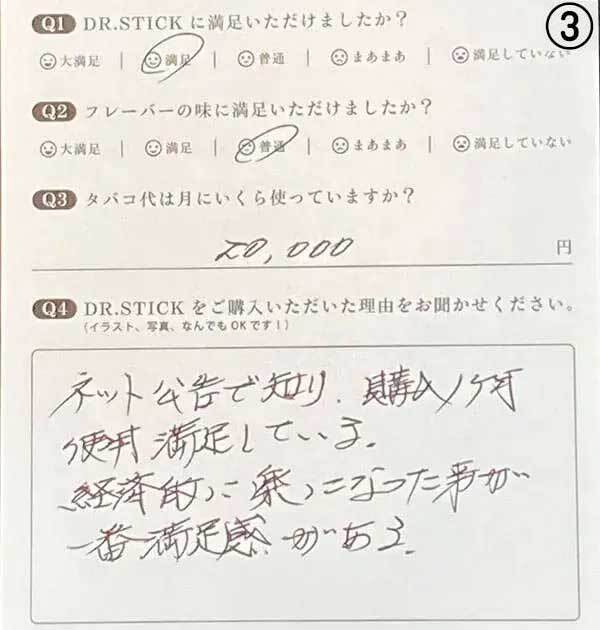 ③
Q1 DR.STICK に満足いただけましたか？
大満足 | 満足 | 普通 | まあまあ | 満足していない
Q2 フレーバーの味に満足いただけましたか？
大満足 | 満足 | 普通 | まあまあ | 満足していない
Q3 タバコ代は月にいくら使っていますか？
20,000 円
Q4 DR.STICK をご購入いただいた理由をお聞かせください。
(イラスト、写真、なんでもOKです！)
ネット公告で知り、購入1ヶ月
使用 満足している。
経済的に楽になった事が
一番満足感がある。